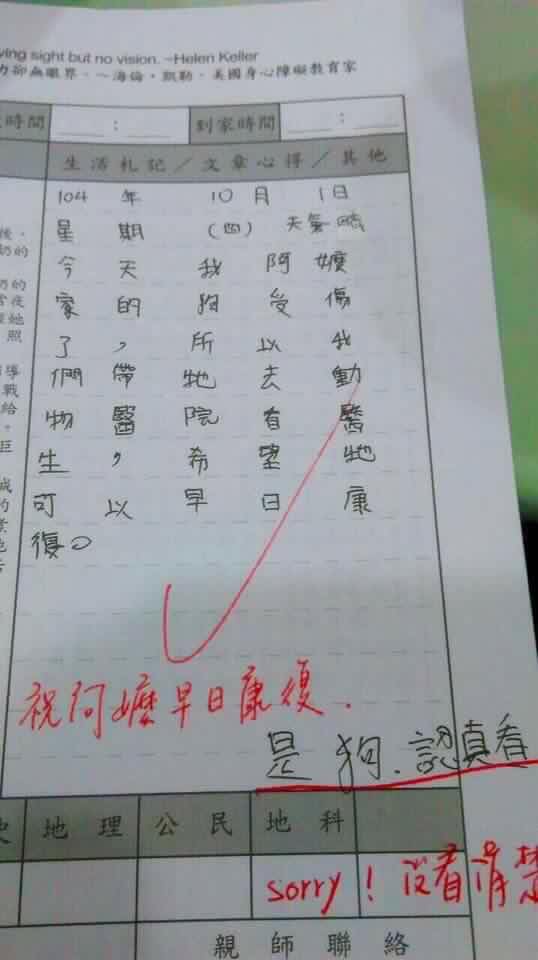 ving sight but no vision. ~Helen Keller
力卻無眼界。～海倫・凱勒，美國身心障礙教育家
時間 ： 到家時間 ：
生活札記／文章心得／其他
104年10月1日
星期(四) 天氣晴
今天我阿嬤
家的狗受傷
了，所以我
們帶牠去動
物醫院看醫
生，希望牠
可以早日康
復。
祝阿嬤早日康復.
是狗.認真看
地理 公民 地科
sorry！沒看清楚
親師聯絡
後，
奶的
奶的
當夜
照
導
戰
給
。
巨
成
的